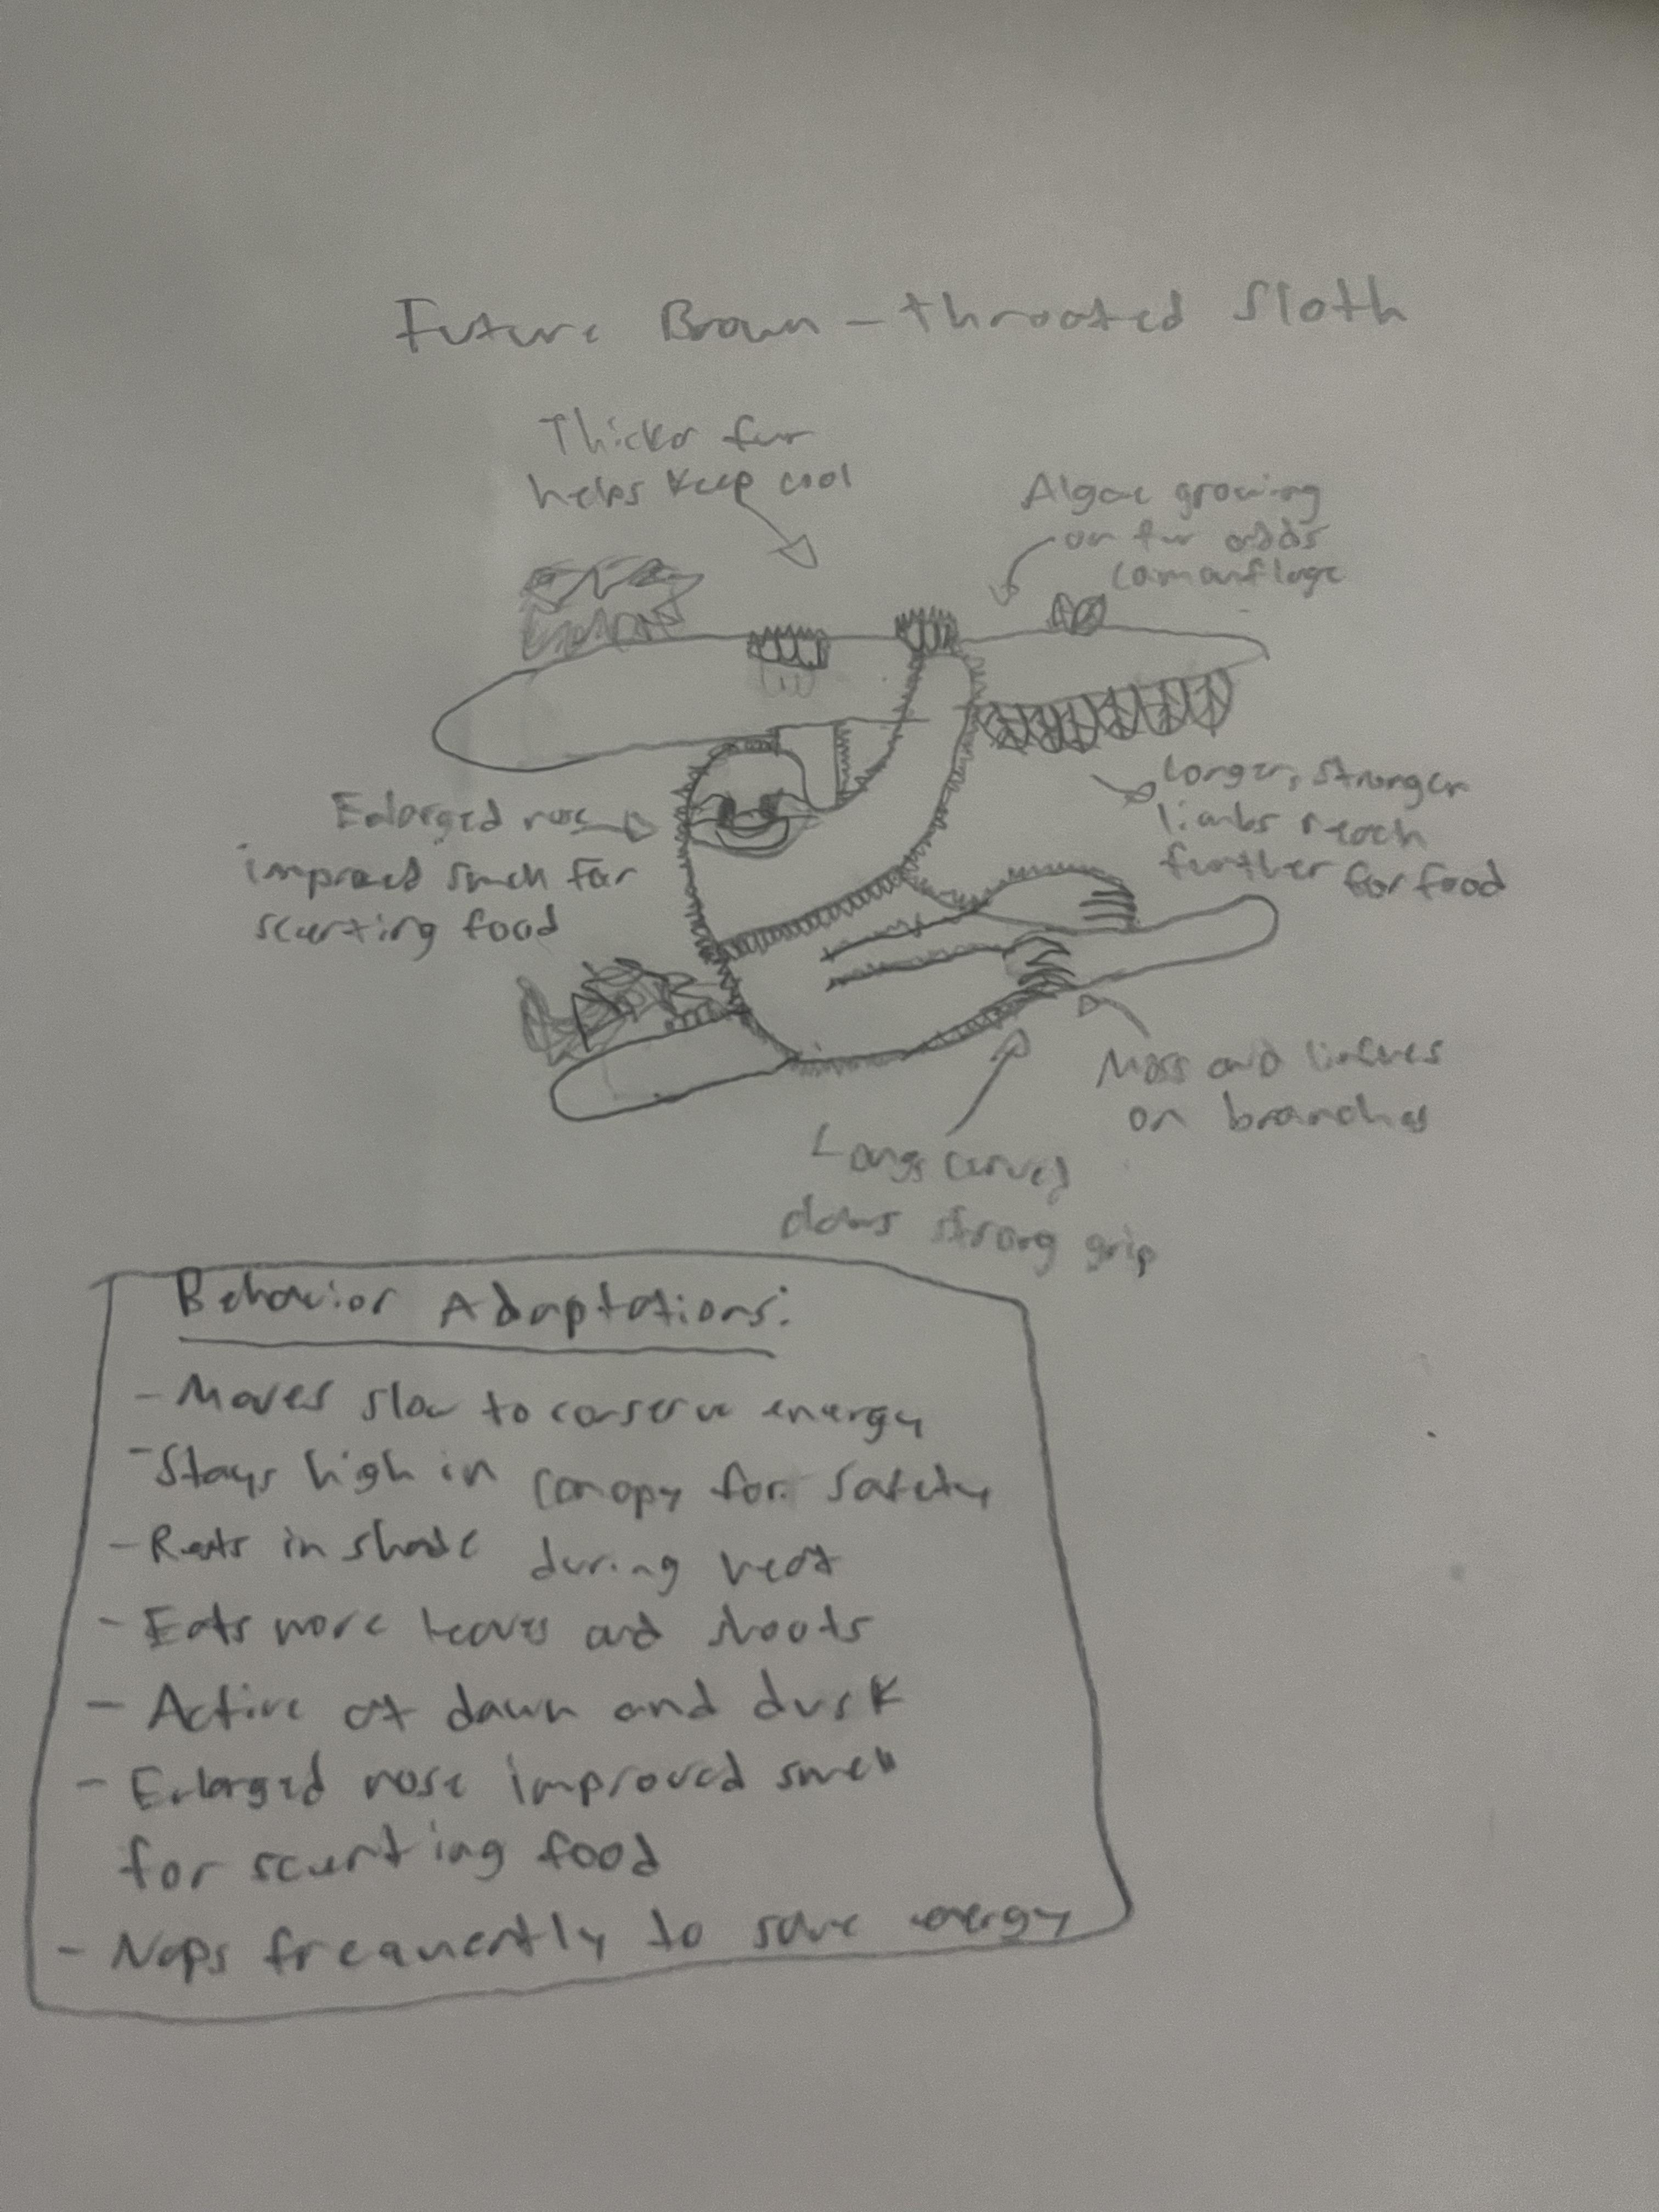 Future Brown-throated Sloth
Thicker fur
helps keep cool
Algae growing
on fur adds
camouflage
Enlarged nose
improved smell for
scenting food
longer, stronger
limbs reach
further for food
Moss and
on branches
Long curved
claws strong grip
Behavior Adaptations:
- Moves slow to conserve energy
- Stays high in canopy for safety
- Rests in shade during heat
- Eats more leaves and shoots
- Active at dawn and dusk
- Enlarged nose improved smell
for scenting food
- Naps frequently to save energy